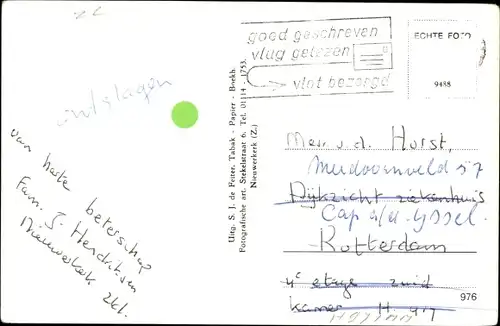 goed geschreven
vlug gelezen
vlot bezorgd
ECHTE FOTO
9488
ontslagen
van harte beterschap
Fam. J. Hendriksen
Nieuwerkerk Zld.
Uitg. S. J. de Feiter, Tabak - Papier - Boekh.
Fotografische art. Stekelstraat 6, Tel. 01114 - 1753.
Nieuwerkerk (Z.)
Mevr. v.d. Horst,
Meidoornveld 57
Dijkzicht ziekenhuis
Cap. a/d. Yssel.
Rotterdam
4e etage zuid
kamer H.
976